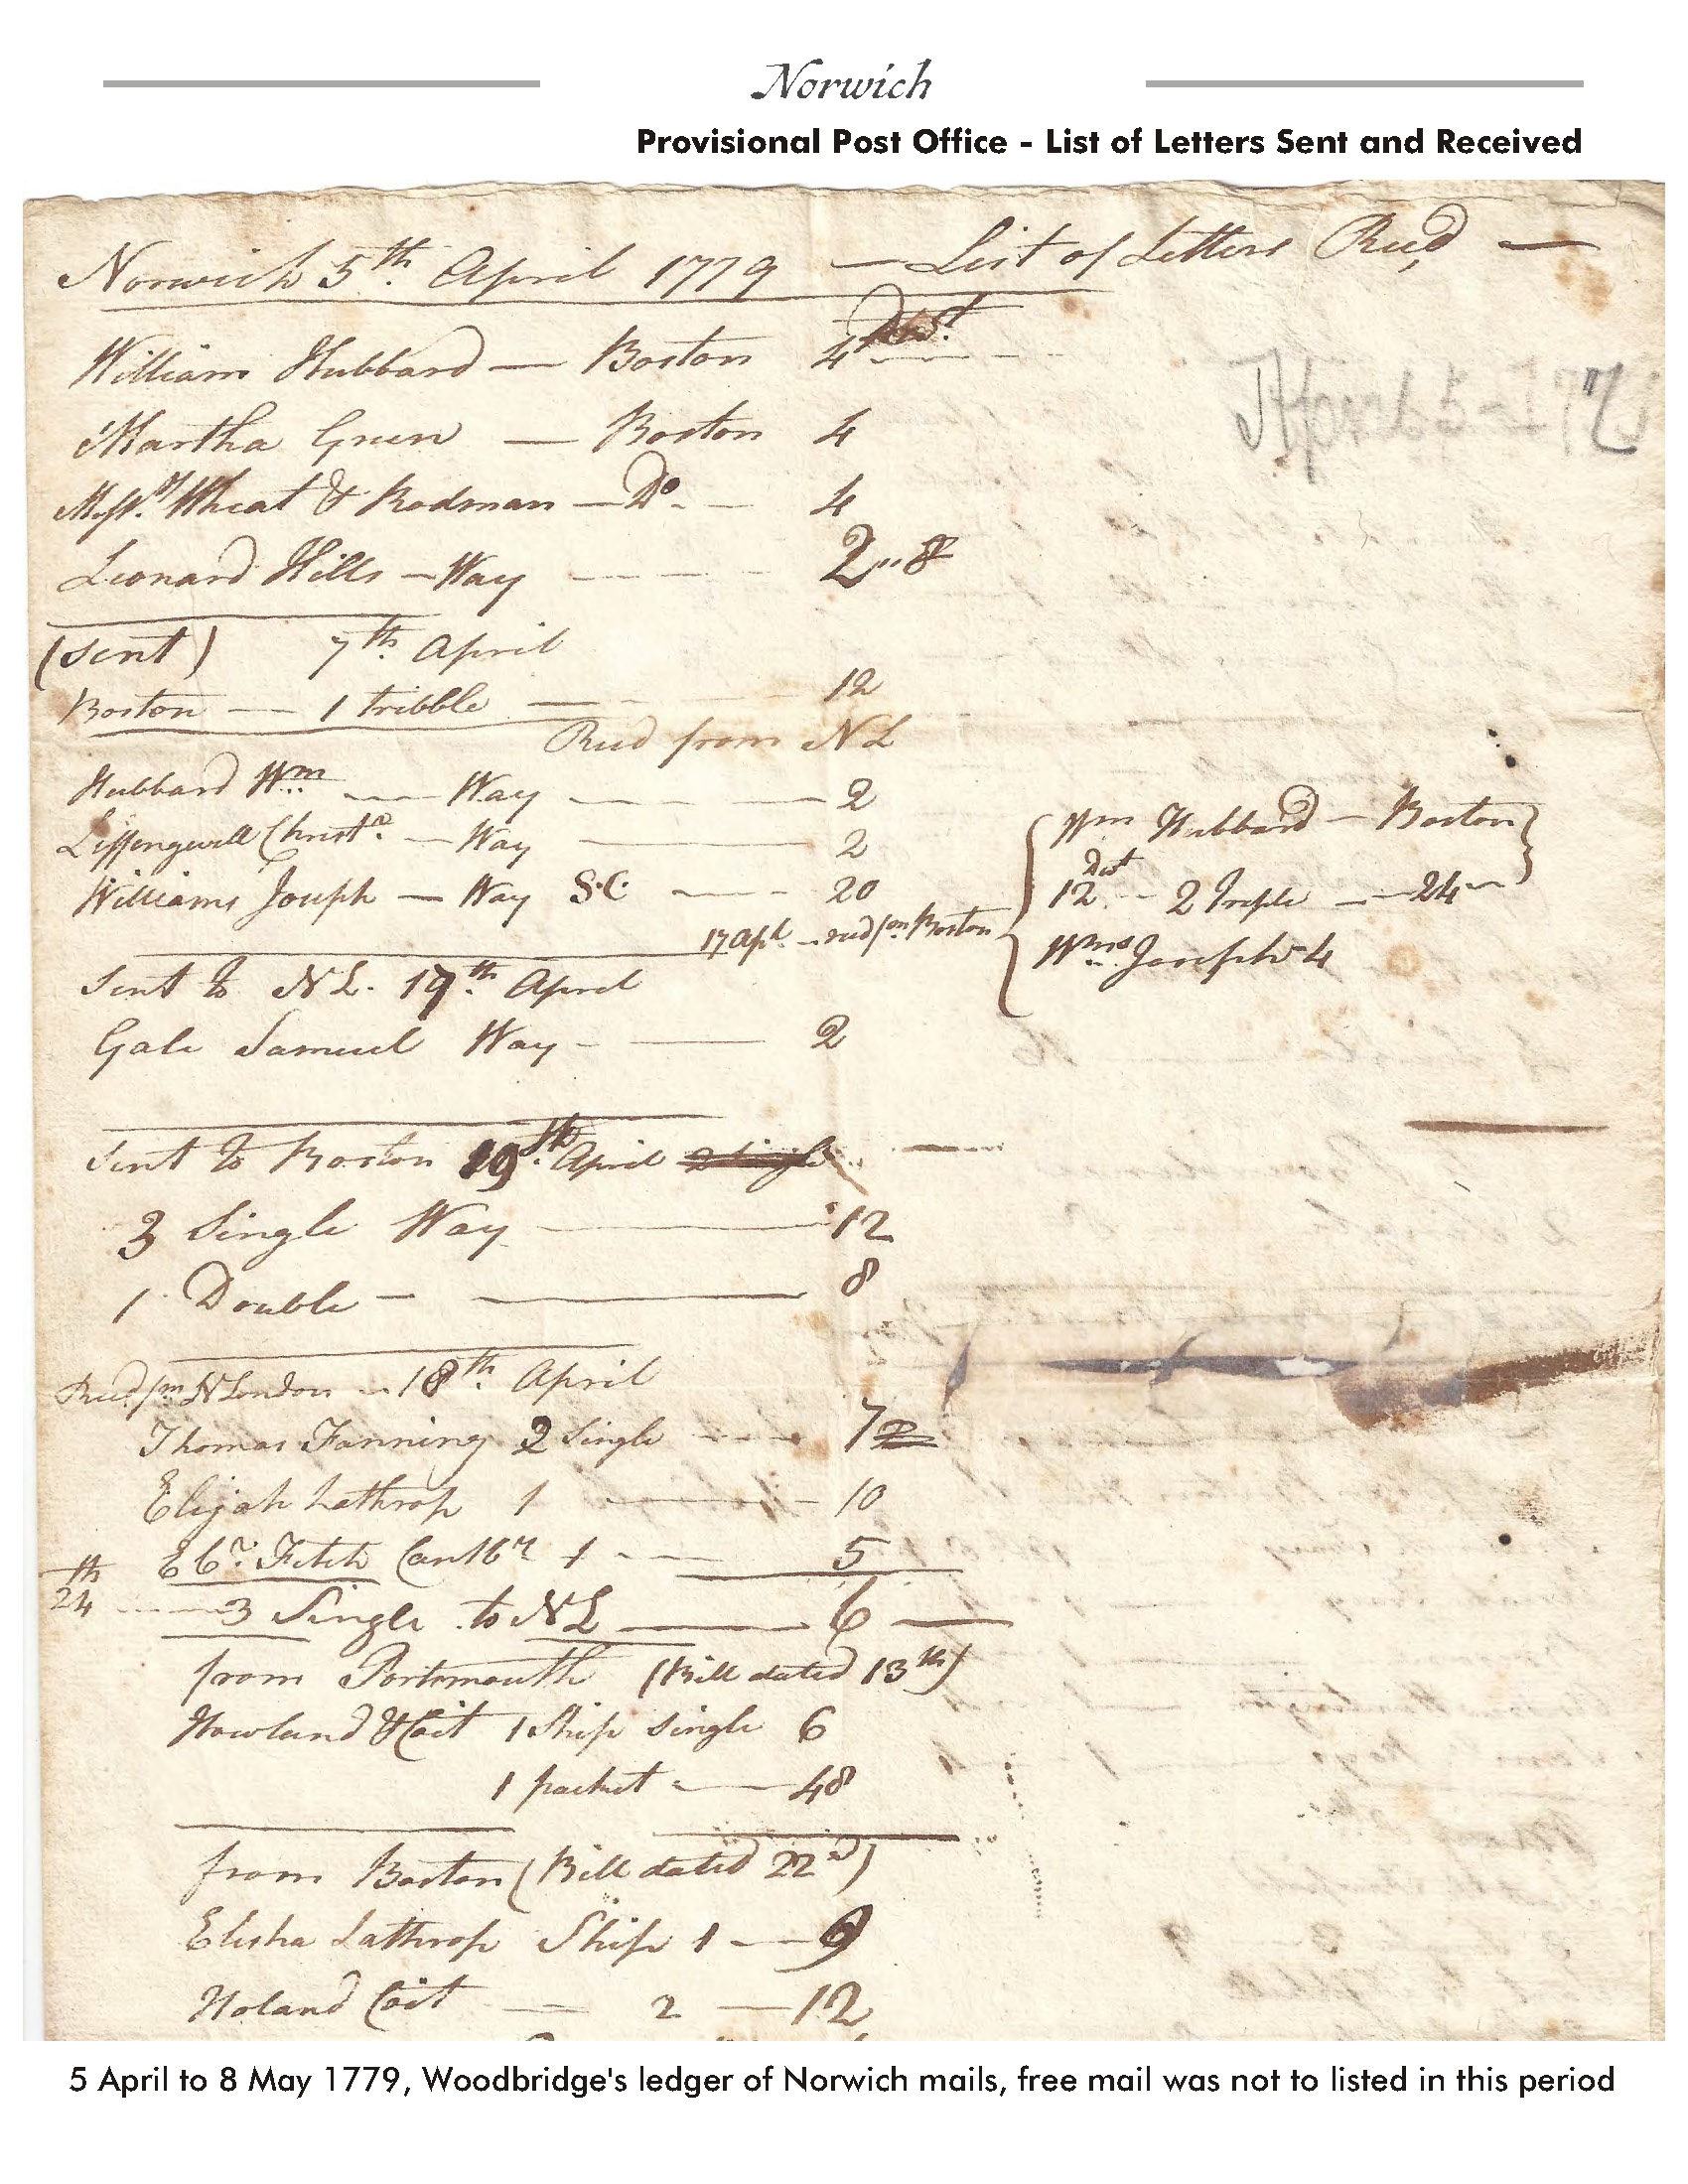 Norwich
Provisional Post Office - List of Letters Sent and Received
Norwich 5th April 1779 — List of Letters Recd —
Dwt
William Hubbard — Boston 4
Martha Green — Boston 4
Messrs Wheat & Rodman — Do - 4
Leonard Hills — Way 2..8
(Sent) 7th April
Boston — 1 tribble — 12
Recd from NL
Hubbard Wm — Way — 2
Leffengwell Christr — Way — 2
Williams Joseph — Way S.C. — 20
17 Apl - recd fm Boston
Wm Hubbard — Boston
Dwt
12 - 2 Triple — 24
Wms Joseph 4
Sent to NL. 19th April
Gale Samuel Way — 2
Sent to Boston 19th April 2 Single
3 Single Way — 12
1 Double — 8
Recd fm N London - 18th April
Thomas Fanning 2 Single 7
Elijah Lathrop 1 — 10
Ebr Fitch Cantbr 1 - 5
24th — 3 Single to NL — 6 —
from Portsmouth (Bill dated 13th)
Howland & Coit 1 Ship Single 6
1 packet — 48
from Boston (Bill dated 22d)
Elisha Lathrop Ship 1 — 9
Holand Coit — 2 — 12
5 April to 8 May 1779, Woodbridge's ledger of Norwich mails, free mail was not to listed in this period